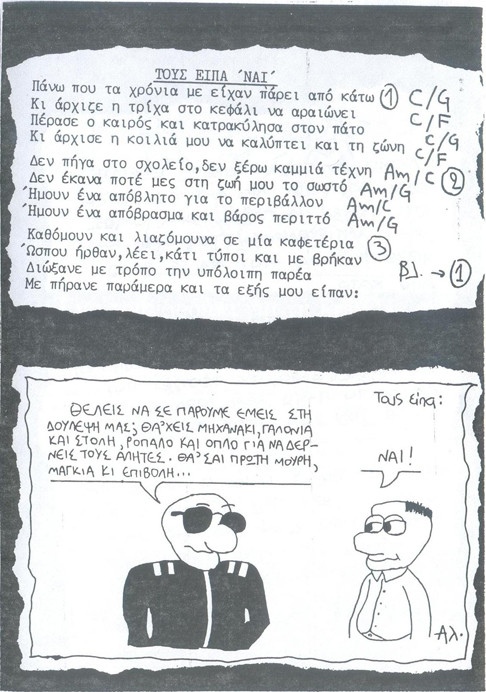 ΤΟΥΣ ΕΙΠΑ ΄ΝΑΙ΄
Πάνω που τα χρόνια με είχαν πάρει από κάτω ① C/G
Κι άρχιζε η τρίχα στο κεφάλι να αραιώνει C/F
Πέρασε ο καιρός και κατρακύλησα στον πάτο C/G
Κι άρχισε η κοιλιά μου να καλύπτει και τη ζώνη C/F
Δεν πήγα στο σχολείο,δεν ξέρω καμμιά τέχνη Am/C ②
Δεν έκανα ποτέ μες στη ζωή μου το σωστό Am/G
Ήμουν ένα απόβλητο για το περιβάλλον Am/C
Ήμουν ένα απόβρασμα και βάρος περιττό Am/G
Καθόμουν και λιαζόμουνα σε μία καφετέρια ③
Ώσπου ήρθαν,λέει,κάτι τύποι και με βρήκαν
Διώξανε με τρόπο την υπόλοιπη παρέα βλ. → ①
Με πήρανε παράμερα και τα εξής μου είπαν:
ΘΕΛΕΙΣ ΝΑ ΣΕ ΠΑΡΟΥΜΕ ΕΜΕΙΣ ΣΤΗ
ΔΟΥΛΕΨΗ ΜΑΣ; ΘΑ'ΧΕΙΣ ΜΗΧΑΝΑΚΙ, ΓΑΛΟΝΙΑ
ΚΑΙ ΣΤΟΛΗ, ΡΟΠΑΛΟ ΚΑΙ ΟΠΛΟ ΓΙΑ ΝΑ ΔΕΡ-
ΝΕΙΣ ΤΟΥΣ ΑΛΗΤΕΣ. ΘΑ'ΣΑΙ ΠΡΩΤΗ ΜΟΥΡΗ,
ΜΑΓΚΙΑ ΚΙ ΕΠΙΒΟΛΗ...
Τους είπα:
ΝΑΙ!
Αλ.